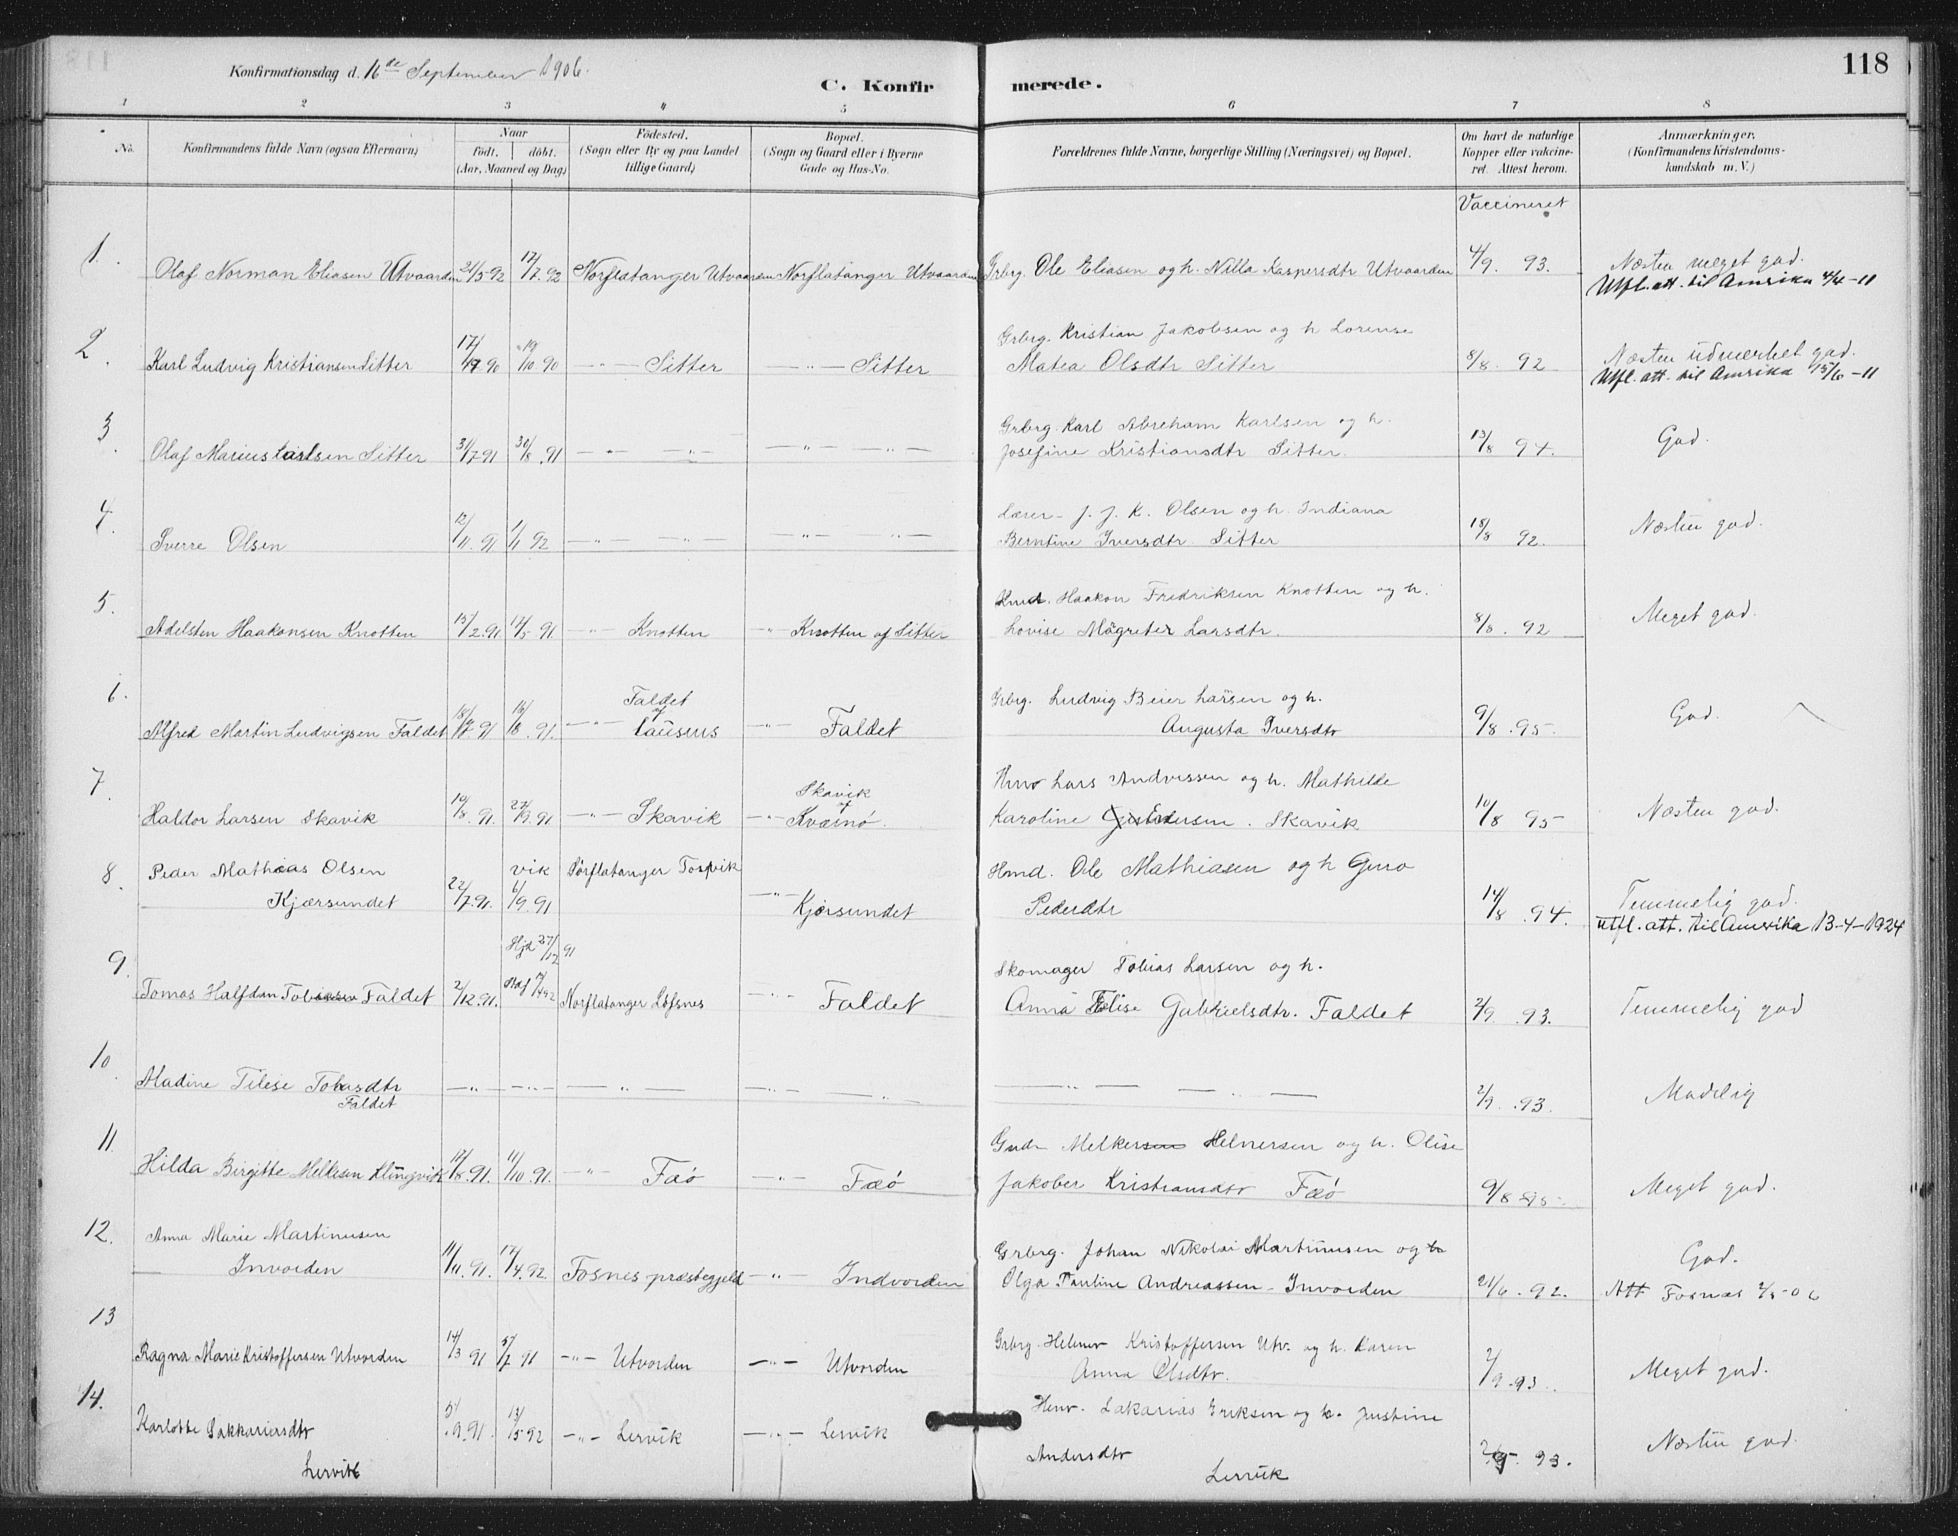 118
Konfirmationsdag d. 16de September 1906.
C. Konfirmerede.
1 2 3 4 5 6 7 8
No. Konfirmandens fulde Navn (ogsaa Efternavn) Naar födt, döbt. (Aar, Maaned og Dag) Födested. (Sogn eller By og paa Landet tillige Gaard) Bopæl. (Sogn og Gaard eller i Byerne Gade og Hus-No. Forældrenes fulde Navne, borgerlige Stilling (Næringsvei) og Bopæl. Om havt de naturlige Kopper eller vakcineret. Attest herom. Anmærkninger. (Konfirmandens Kristendomskundskab m. V.)
Vaccineret
1. Olaf Norman Eliasen Utvaarden 21/5 92 17/7 92 Norflatanger Utvaarden Norflatanger Utvaarden Grbrg. Ole Eliasen og h. Nilla Kaspersdtr Utvaarden 4/9. 93. Næsten meget god.
Utfl. att. til Amerika 4/4-11
2. Karl Ludvig Kristiansen Sitter 90 19/10 90 — " — Sitter — " — Sitter Grbrg. Kristian Jakobsen og h Lorense
Matea Olsdtr Sitter 8/8. 92 Næsten udmerket god.
Utfl. att. til Amrika 15/6-11
3. Olaf Marius Karlsen Sitter 31/7 91 30/8. 91 — " — — " — — " — — " — Grbrg. Karl Abreham Karlsen og h.
Josefine Kristiansdtr Sitter. 13/8 94. God.
4. Sverre Olsen 12/11. 91 1/11 92 — " — — " — — " — — " — Lærer J. J. K. Olsen og h. Indiana
Berntine Iversdtr. Sitter 18/8 92. Næsten god.
5. Adelsten Haakonsen Knotten 15/2. 91 17/5 91 — " — Knotten — " — Knotten af Sitter Haakon Fredriksen Knotten og h.
Lovise Margrete Larsdtr. 8/8. 92 Meget god.
6. Alfred Martin Ludvigsen Faldet 91 16/8. 91. — " — Faldet af Lausnes — " — Faldet Grbrg. Ludvig Beier Larsen og h.
Augusta Iversdtr 9/8. 95. God.
7. Haldor Larsen Skavik 10/8. 91. 27/9. 91 — " — Skavik — " — Skavik af Kværnø. Lars Andressen og h. Mathilde
Karoline Skavik 10/8 95 Næsten god.
8. Peder Mathias Olsen
Kjærsundet 22/7. 91. 6/9. 91 Sørflatanger — " — Kjærsundet Hmd. Ole Mathiasen og h Guro
Pedersdtr 14/8. 94. Temmelig god.
utfl. att. til Amerika 13-4-1924
9. Tomas Halfdan Tobiasen Faldet 2/12. 91. Hjd 27/12 91 Norflatanger Løfsnes — " — Faldet Skomager Tobias Larsen og h.
Anna Elise Gabrielsdtr. Faldet 2/9. 93. Temmelig god
10. Madine Tilise Tobiasdtr
Faldet — " — — " — — " — — " — — " — — " — 2/9. 93. Madelig
11. Hilda Birgitte Melkesen Klingvik 17/8. 91. 11/10. 91. — " — Faø — " — Fæø Melker Helnersen og h. Olise
Jakober Kristiansdtr Fæø 9/8 95. Meget god.
12. Anna Marie Martinusen
Invorden 11/11. 91. 17/4. 92. Fosnes præstegjeld — " — Indvorden Grbrg. Johan Nikolai Martinusen og h
Olga Pauline Andreassen - Invorden 21/6. 92. God.
Att Fosnas 2/5-06
13 Ragna Marie Kristoffersen Utvorden 14/3 91 5/7 91 — " — Utvorden — " — Utvorden Grbrg. Helmer Kristoffersen Utv. og h. Karen
Anna Olsdtr. 2/9. 93. Meget god.
14. Karlotte Sakkariasdtr
Lervik 5/9. 91. 13/5 92 — " — Lervik — " — Lervik Sakarias Eriksen og h. Justine
Andersdtr Lervik 93. Næsten god.